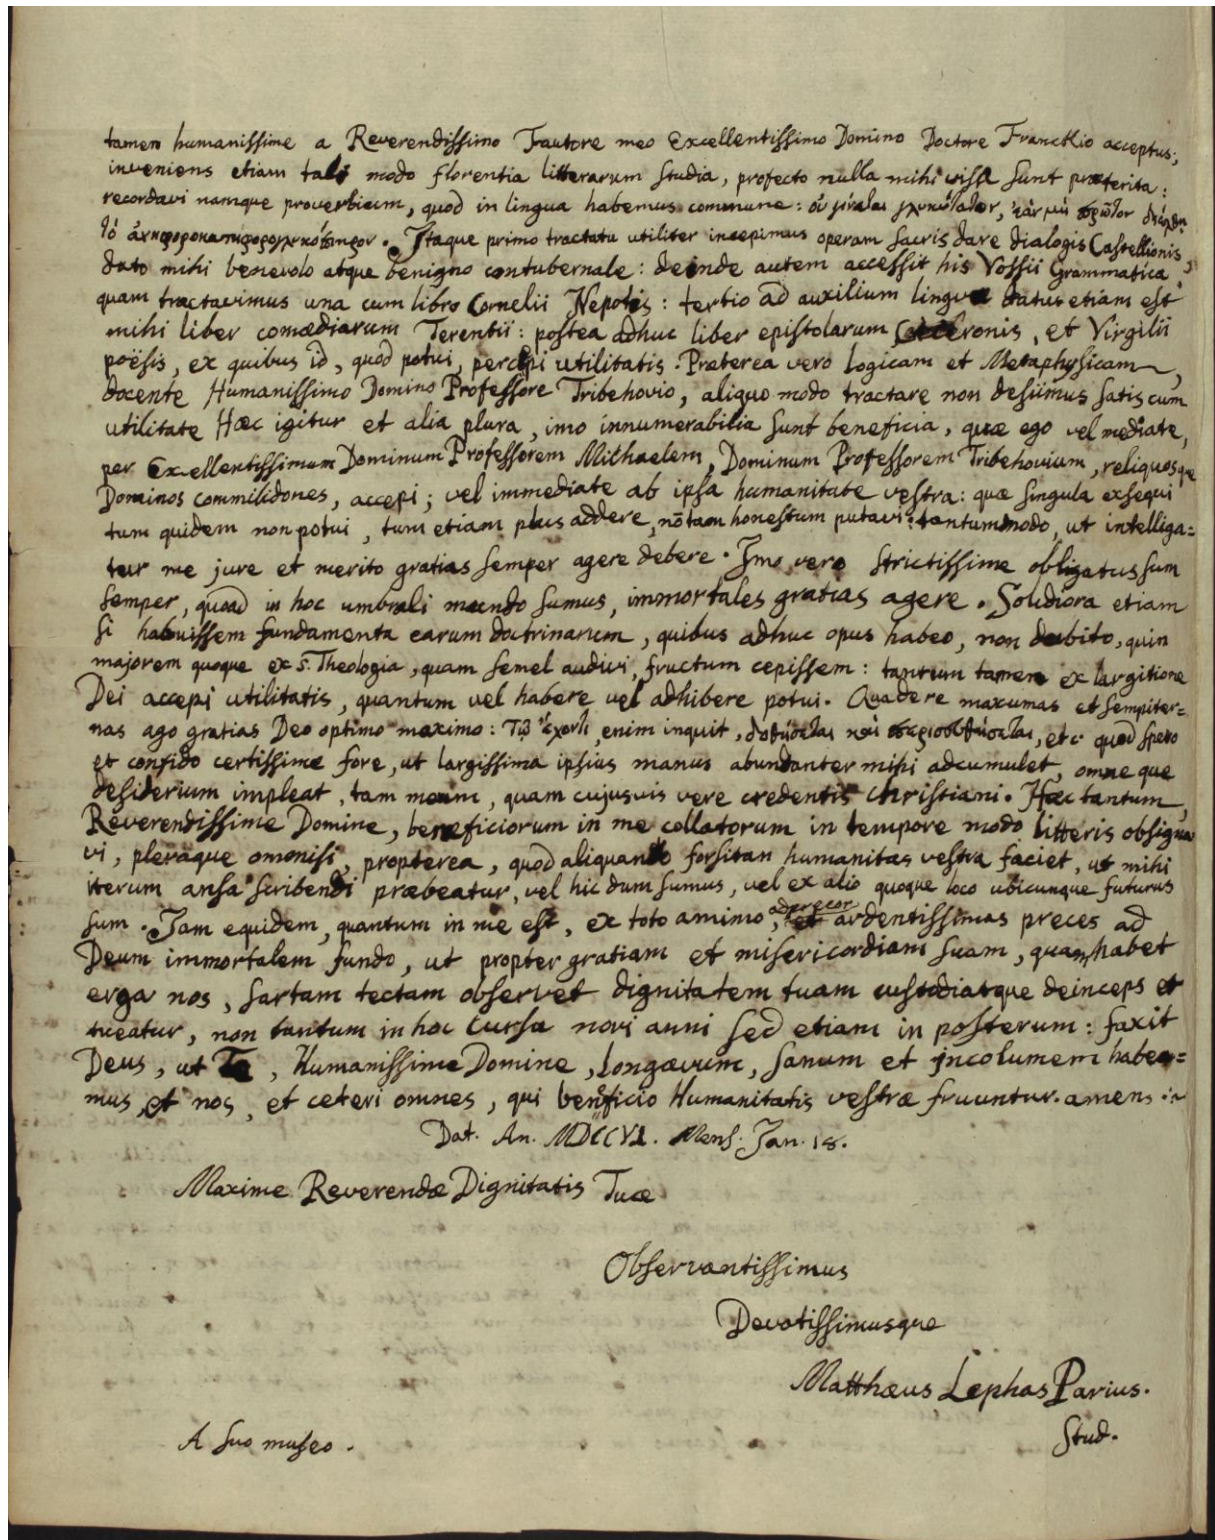 tamen humanissime a Reverendissimo Fautore meo Excellentissimo Domino Doctore Franckio acceptus;
inveniens etiam tali modo florentia litterarum studia, profecto nulla mihi visa sunt præterita:
recordavi namque proverbium, quod in lingua habemus commune: οὐ
Itaque primo tractatu utiliter incepimus operam sacris dare dialogis Castellionis
dato mihi benevolo atque benigno contubernale: deinde autem accessit his Vossii Grammatica,
quam tractavimus una cum libro Cornelii Nepotis: tertio ad auxilium linguæ datus etiam est
mihi liber comædiarum Terentii: postea adhuc liber epistolarum Ciceronis, et Virgilii
poësis, ex quibus id, quod potui, percepi utilitatis. Præterea vero Logicam et Metaphysicam,
docente Humanissimo Domino Professore Tribehovio, aliquo modo tractare non desiimus satis cum
utilitate Hæc igitur et alia plura, imo innumerabilia sunt beneficia, quæ ego vel mediate,
per Excellentissimum Dominum Professorem Mithaelem, Dominum Professorem Tribehovium, reliquosque
Dominos commilidones, accepi; vel immediate ab ipsa humanitate vestra: quæ singula exsequi
tum quidem non potui, tum etiam plus addere, nō tam honestum putavi: tantummodo, ut intelliga=
tur me jure et merito gratias semper agere debere. Imo vero strictissime obligatus sum
semper, quoad in hoc umbrali mundo sumus, immortales gratias agere. Solidiora etiam
si habuissem fundamenta earum doctrinarum, quibus adhuc opus habeo, non dubito, quin
majorem quoque ex S. Theologia, quam semel audivi, fructum cepissem: tantum tamen ex largitione
Dei accepi utilitatis, quantum vel habere vel adhibere potui. Quadere maxumas et sempiter=
nas ago gratias Deo optimo maximo: Τῷ ἔχοντι enim inquit, δοθήσεται καὶ περισσευθήσεται, etc. quod spero
et confido certissime fore, ut largissima ipsius manus abundanter mihi adcumulet, omne que
desiderium impleat, tam meum, quam cujusvis vere credentis Christiani. Hæc tantum,
Reverendissime Domine, beneficiorum in me collatorum in tempore modo litteris obsigna
vi, pleraque omonisi, propterea, quod aliquando forsitan humanitas vestra faciet, ut mihi
iterum ansa scribendi præbeatur, vel hic dum sumus, vel ex alio quoque loco ubicunque futurus
sum. Jam equidem, quantum in me est, ex toto amimo, adprecor ardentissimas preces ad
Deum immortalem fundo, ut propter gratiam et misericordiam suam, quam habet
erga nos, sartam tectam observet dignitatem tuam custodiatque deinceps et
tueatur, non tantum in hoc cursu novi anni sed etiam in posterum: faxit
Deus, ut Te, Humanissime Domine, longævum, sanum et incolumem habea=
mus et nos, et ceteri omnes, qui beneficio Humanitatis vestræ fruuntur. amen
Dat. An. MDCCVI. Mens. Jan. 18.
Maxime Reverendæ Dignitatis Tuæ
Observantissimus
Devotissimusque
Matthæus Lephas Parius.
A suo museo. Stud.